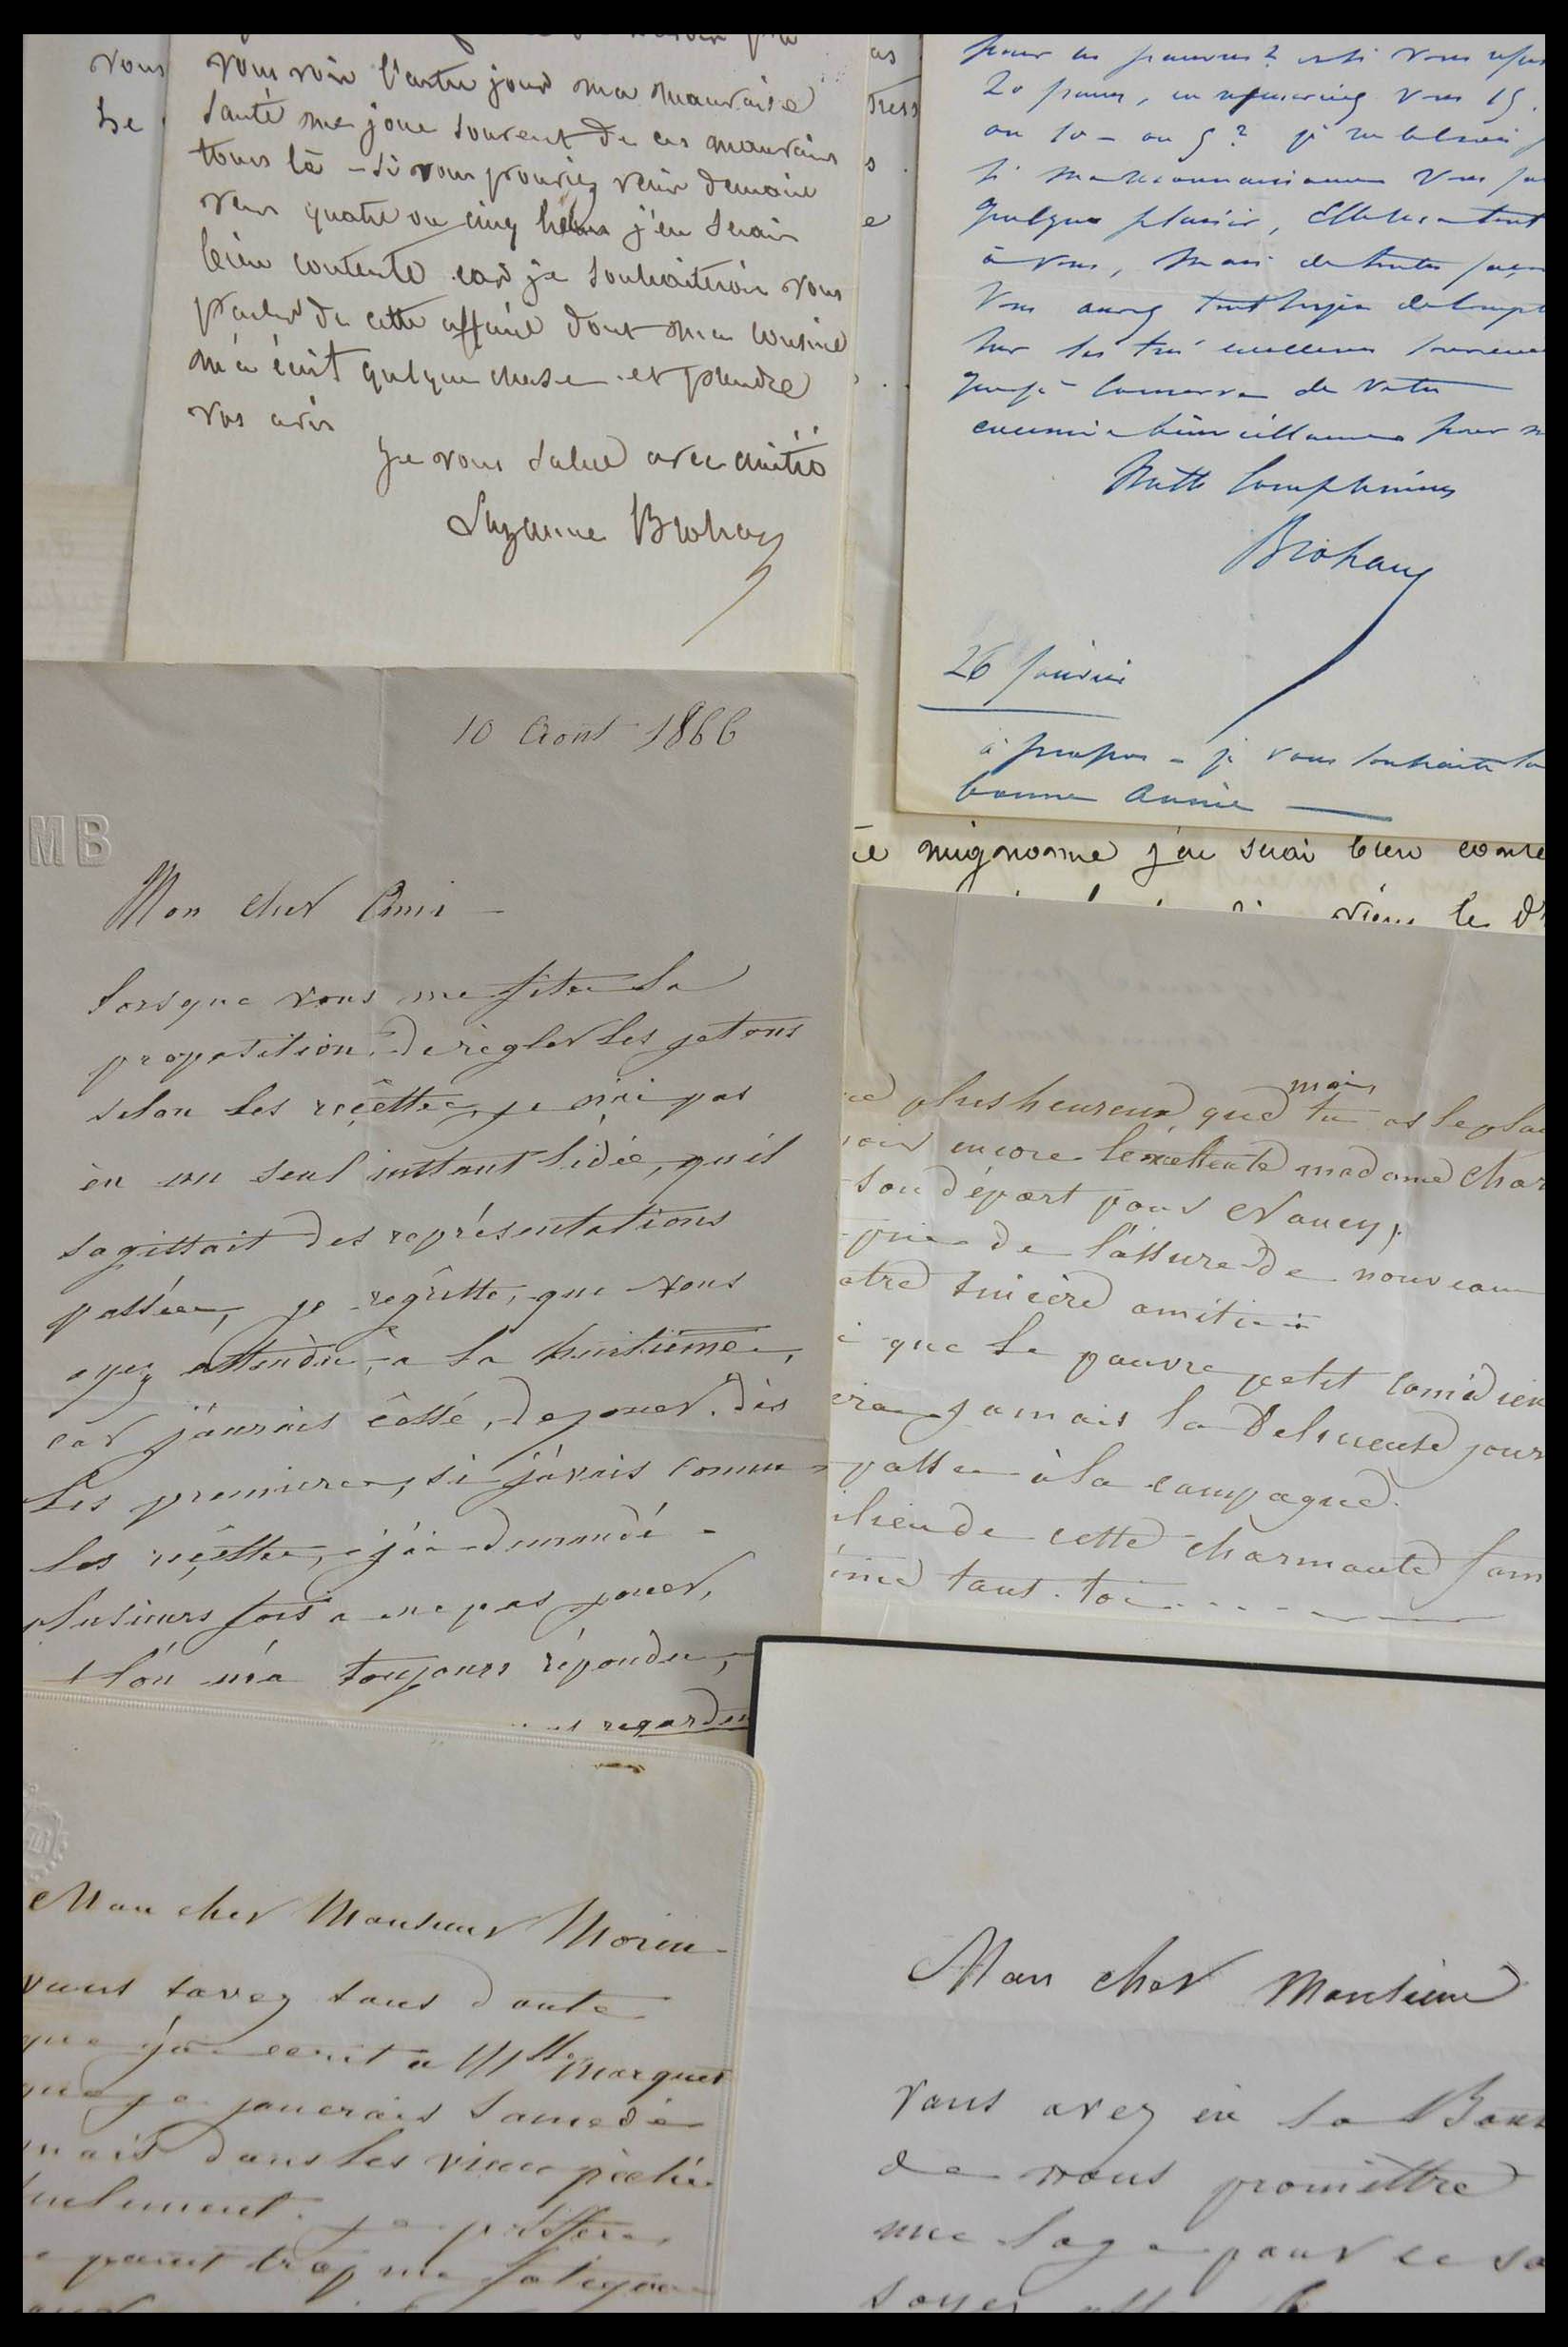 vous
se
vous voir l'autre jour ma mauvaise
santé me joue souvent de ces mauvais
tours là – si vous pouviez venir demain
vers quatre ou cinq heures j'en serais
bien contente car je souhaiterais vous
parler de cette affaire dont ma cousine
m'a écrit quelque chose et prendre
vos avis
Je vous salue avec amitié
Suzanne Brohan
as
tress
s
e
pour les pauvres? et si vous
20 francs, en vous 15.
ou 10 – ou 5? je
si ma reconnaissance vous
quelque plaisir, Elle est tout
à vous, mais de toutes
vous avez tout
sur les très excellents
que je conserve de votre
bienveillance pour
Mille compliments
Brohan
26 janvier
à propos – je vous souhaite la
bonne année
10 Aout 1866
MB
Mon cher Ami –
lorsque vous me fites la
proposition de regler les jetons
selon les recettes, je n'ai pas
eu un seul instant l'idée, qu'il
sagittait des représentations
passées, je regrette, que vous
ayez attendu, a la huitième,
car j'aurais cessé, de jouer, dès
les premieres, si j'avais connu
les recettes, j'ai demandé –
plusieurs fois a ne pas jouer,
l'on m'a toujours répondu,
regarden
mignonne j'en serai bien conte
viens le
plus heureux que mais tu as le
voir encore l'excellente madame Char
son départ pour Nancy,
prie de l'assurer de nouveau
otre sincère amitié
que le pauvre petit comédien
jamais la délicieuse jour
passée à la campagne.
ilieu de cette charmante fam
aime tant. toi
Mon cher Monsieur Morin –
vous savez sans doute
que j'ai ecrit a Mlle Marquet
que je jouerais samedi
mais dans les vieux pièces
seulement. je préfère
point trop me fatiguer
Mon cher Monsieur
vous avez eu la Bont
de nous promettre
une loge pour ce